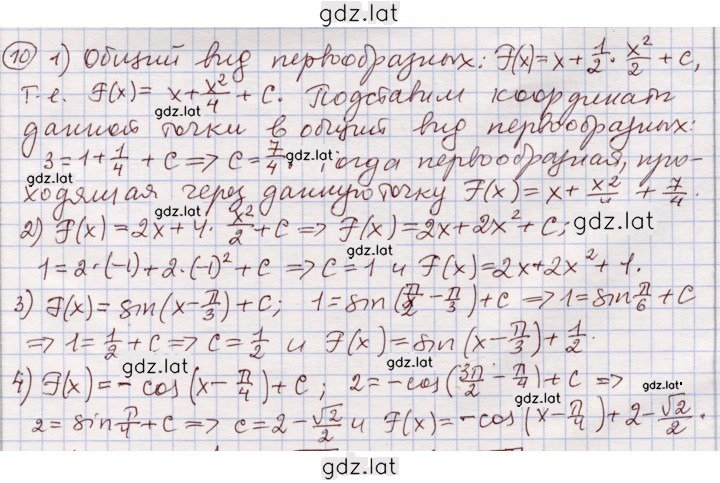 gdz.lat
10) 1) Общий вид первообразных: F(x) = x + 1/2 · x²/2 + C,
т.е. F(x) = x + x²/4 + C. Подставим координаты
gdz.lat
данной точки в общий вид первообразных:
3 = 1 + 1/4 + C => C = 7/4. огда первообразная, про-
gdz.lat gdz.lat
ходящая через данную точку F(x) = x + x²/4 + 7/4.
gdz.lat gdz.lat
2) F(x) = 2x + 4 · x²/2 + C => F(x) = 2x + 2x² + C;
gdz.lat
1 = 2·(-1) + 2·(-1)² + C => C = 1 и F(x) = 2x + 2x² + 1.
3) F(x) = sin(x - π/3) + C; 1 = sin(π/2 - π/3) + C => 1 = sin π/6 + C
gdz.lat
=> 1 = 1/2 + C => C = 1/2 и F(x) = sin(x - π/3) + 1/2.
gdz.lat gdz.lat
4) F(x) = - cos(x - π/4) + C; 2 = - cos(3π/2 - π/4) + C =>
gdz.lat
2 = sin π/4 + C => C = 2 - √2/2 и F(x) = - cos(x - π/4) + 2 - √2/2.
gdz.lat gdz.lat
gdz.lat